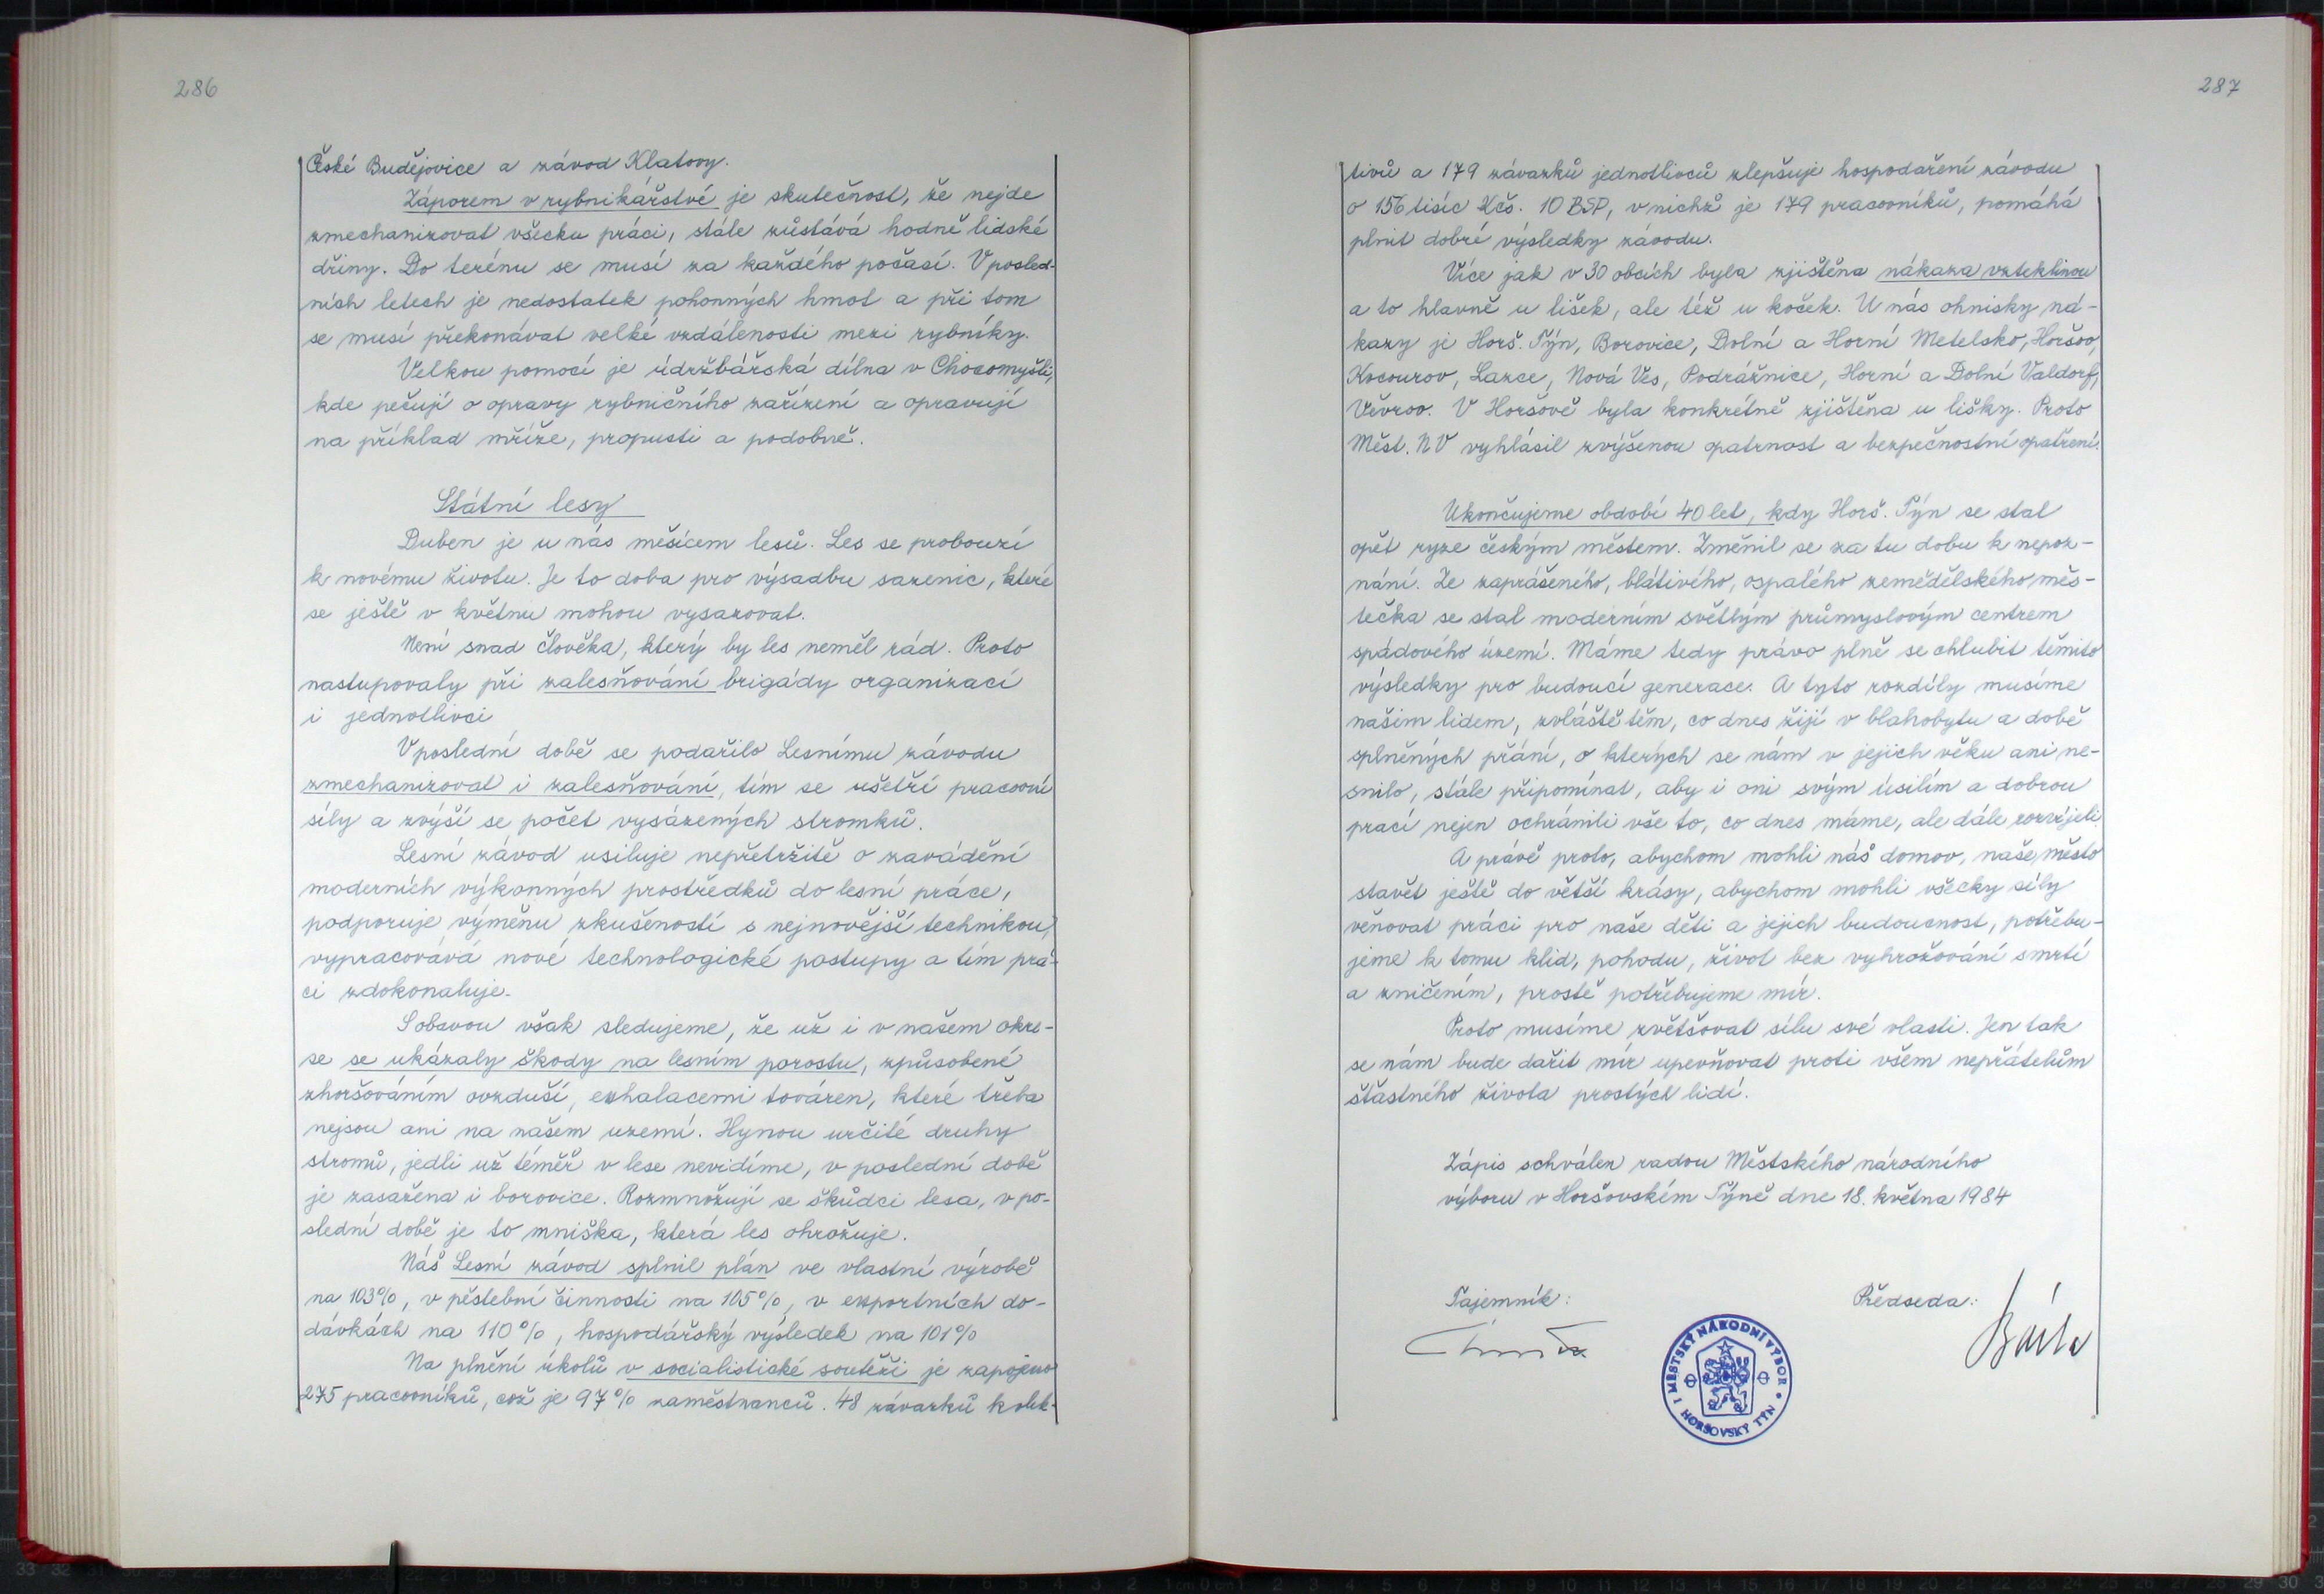 286
České Budějovice a závod Klatovy.
Záporem v rybnikářství je skutečnost, že nejde
zmechanizovat všecku práci, stále zůstává hodně lidské
dřiny. Do terénu se musí za každého počasí. V posled-
ních letech je nedostatek pohonných hmot a při tom
se musí překonávat velké vzdálenosti mezi rybníky.
Velkou pomocí je údržbářská dílna v Chocomyšli,
kde pečují o opravy rybničního zařízení a opravují
na příklad mříže, propusti a podobně.
Státní lesy
Duben je u nás měsícem lesů. Les se probouzí
k novému životu. Je to doba pro výsadbu sazenic, které
se ještě v květnu mohou vysazovat.
Není snad člověka, který by les neměl rád. Proto
nastupovaly při zalesňování brigády organizací
i jednotlivci
V poslední době se podařilo Lesnímu závodu
zmechanizovat i zalesňování, tím se ušetří pracovní
síly a zvýší se počet vysázených stromků.
Lesní závod usiluje nepřetržitě o zavádění
moderních výkonných prostředků do lesní práce,
podporuje výměnu zkušeností s nejnovější technikou,
vypracovává nové technologické postupy a tím prá-
ci zdokonaluje.
S obavou však sledujeme, že už i v našem okre-
se se ukázaly škody na lesním porostu, způsobené
zhoršováním ovzduší, exhalacemi továren, které třeba
nejsou ani na našem uzemí. Hynou určité druhy
stromů, jedli už téměř v lese nevidíme, v poslední době
je zasažena i borovice. Rozmnožují se škůdci lesa, v po-
slední době je to mniška, která les ohrožuje.
Náš Lesní závod splnil plán ve vlastní výrobě
na 103%, v pěstební činnosti na 105%, v exportních do-
dávkách na 110%, hospodářský výsledek na 101%
Na plnění úkolů v socialistické soutěži je zapojeno
275 pracovníků, což je 97% zaměstnanců. 48 závazků kolek-
287
tivů a 179 závazků jednotlivců zlepšuje hospodaření závodu
o 156 tisíc Kčs. 10 BSP, v nichž je 179 pracovníků, pomáhá
plnit dobré výsledky závodu.
Více jak v 30 obcích byla zjištěna nákaza vzteklinou
a to hlavně u lišek, ale též u koček. U nás ohnisky ná-
kazy je Horš. Týn, Borovice, Dolní a Horní Metelsko, Horšov,
Kocourov, Lazce, Nová Ves, Podražnice, Horní a Dolní Valdorf,
Věvrov. V Horšově byla konkrétně zjištěna u lišky. Proto
Měst. NV vyhlásil zvýšenou opatrnost a bezpečnostní opatření.
Ukončujeme období 40 let, kdy Horš. Týn se stal
opět ryze českým městem. Změnil se za tu dobu k nepoz-
nání. Ze zaprášeného, blátivého, ospalého zemědělského měs-
tečka se stal moderním světlým průmyslovým centrem
spádového území. Máme tedy právo plně se chlubit těmito
výsledky pro budoucí generace. A tyto rozdíly musíme
našim lidem, zvláště těm, co dnes žijí v blahobytu a době
splněných přání, o kterých se nám v jejich věku ani ne-
snilo, stále připomínat, aby i oni svým úsilím a dobrou
prací nejen ochránili vše to, co dnes máme, ale dále rozvíjeli.
A právě proto, abychom mohli náš domov, naše město
stavět ještě do větší krásy, abychom mohli všecky síly
věnovat práci pro naše děti a jejich budoucnost, potřebu-
jeme k tomu klid, pohodu, život bez vyhrožování smrtí
a zničením, prostě potřebujeme mír.
Proto musíme zvětšovat sílu své vlasti. Jen tak
se nám bude dařit mír upevňovat proti všem nepřátelům
šťastného života prostých lidí.
Zápis schválen radou Městského národního
výboru v Horšovském Týně dne 18. května 1984
Tajemník: Předseda:
MĚSTSKÝ NÁRODNÍ VÝBOR
HORŠOVSKÝ TÝN